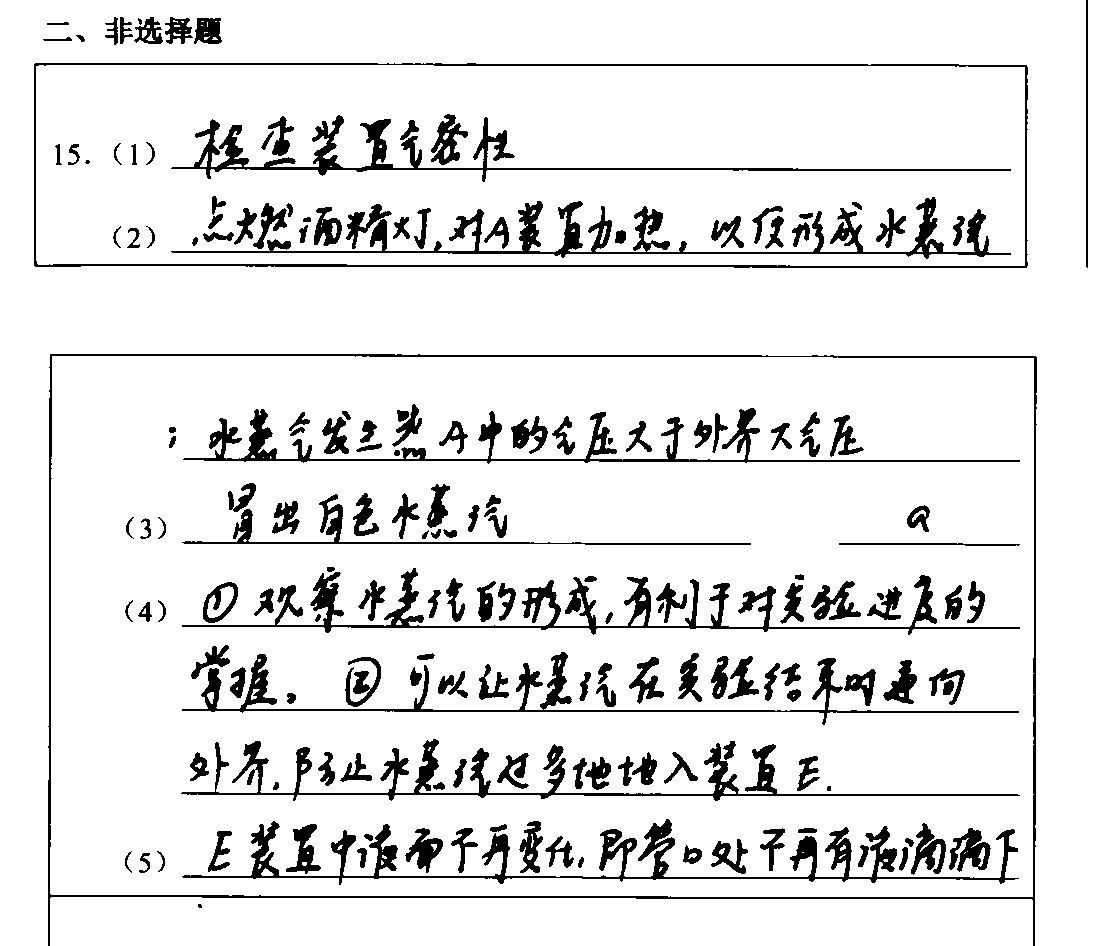 二、非选择题
15.（1） 检查装置气密性
（2） 点燃酒精灯,对A装置加热,以便形成水蒸汽
; 水蒸气发生器A中的气压大于外界大气压
（3） 冒出白色水蒸汽 a
（4） ①观察水蒸汽的形成,有利于对实验进度的
掌握。②可以让水蒸汽在实验结束时通向
外界,防止水蒸汽过多地地入装置E.
（5） E装置中液面不再变化,即管口处不再有液滴滴下